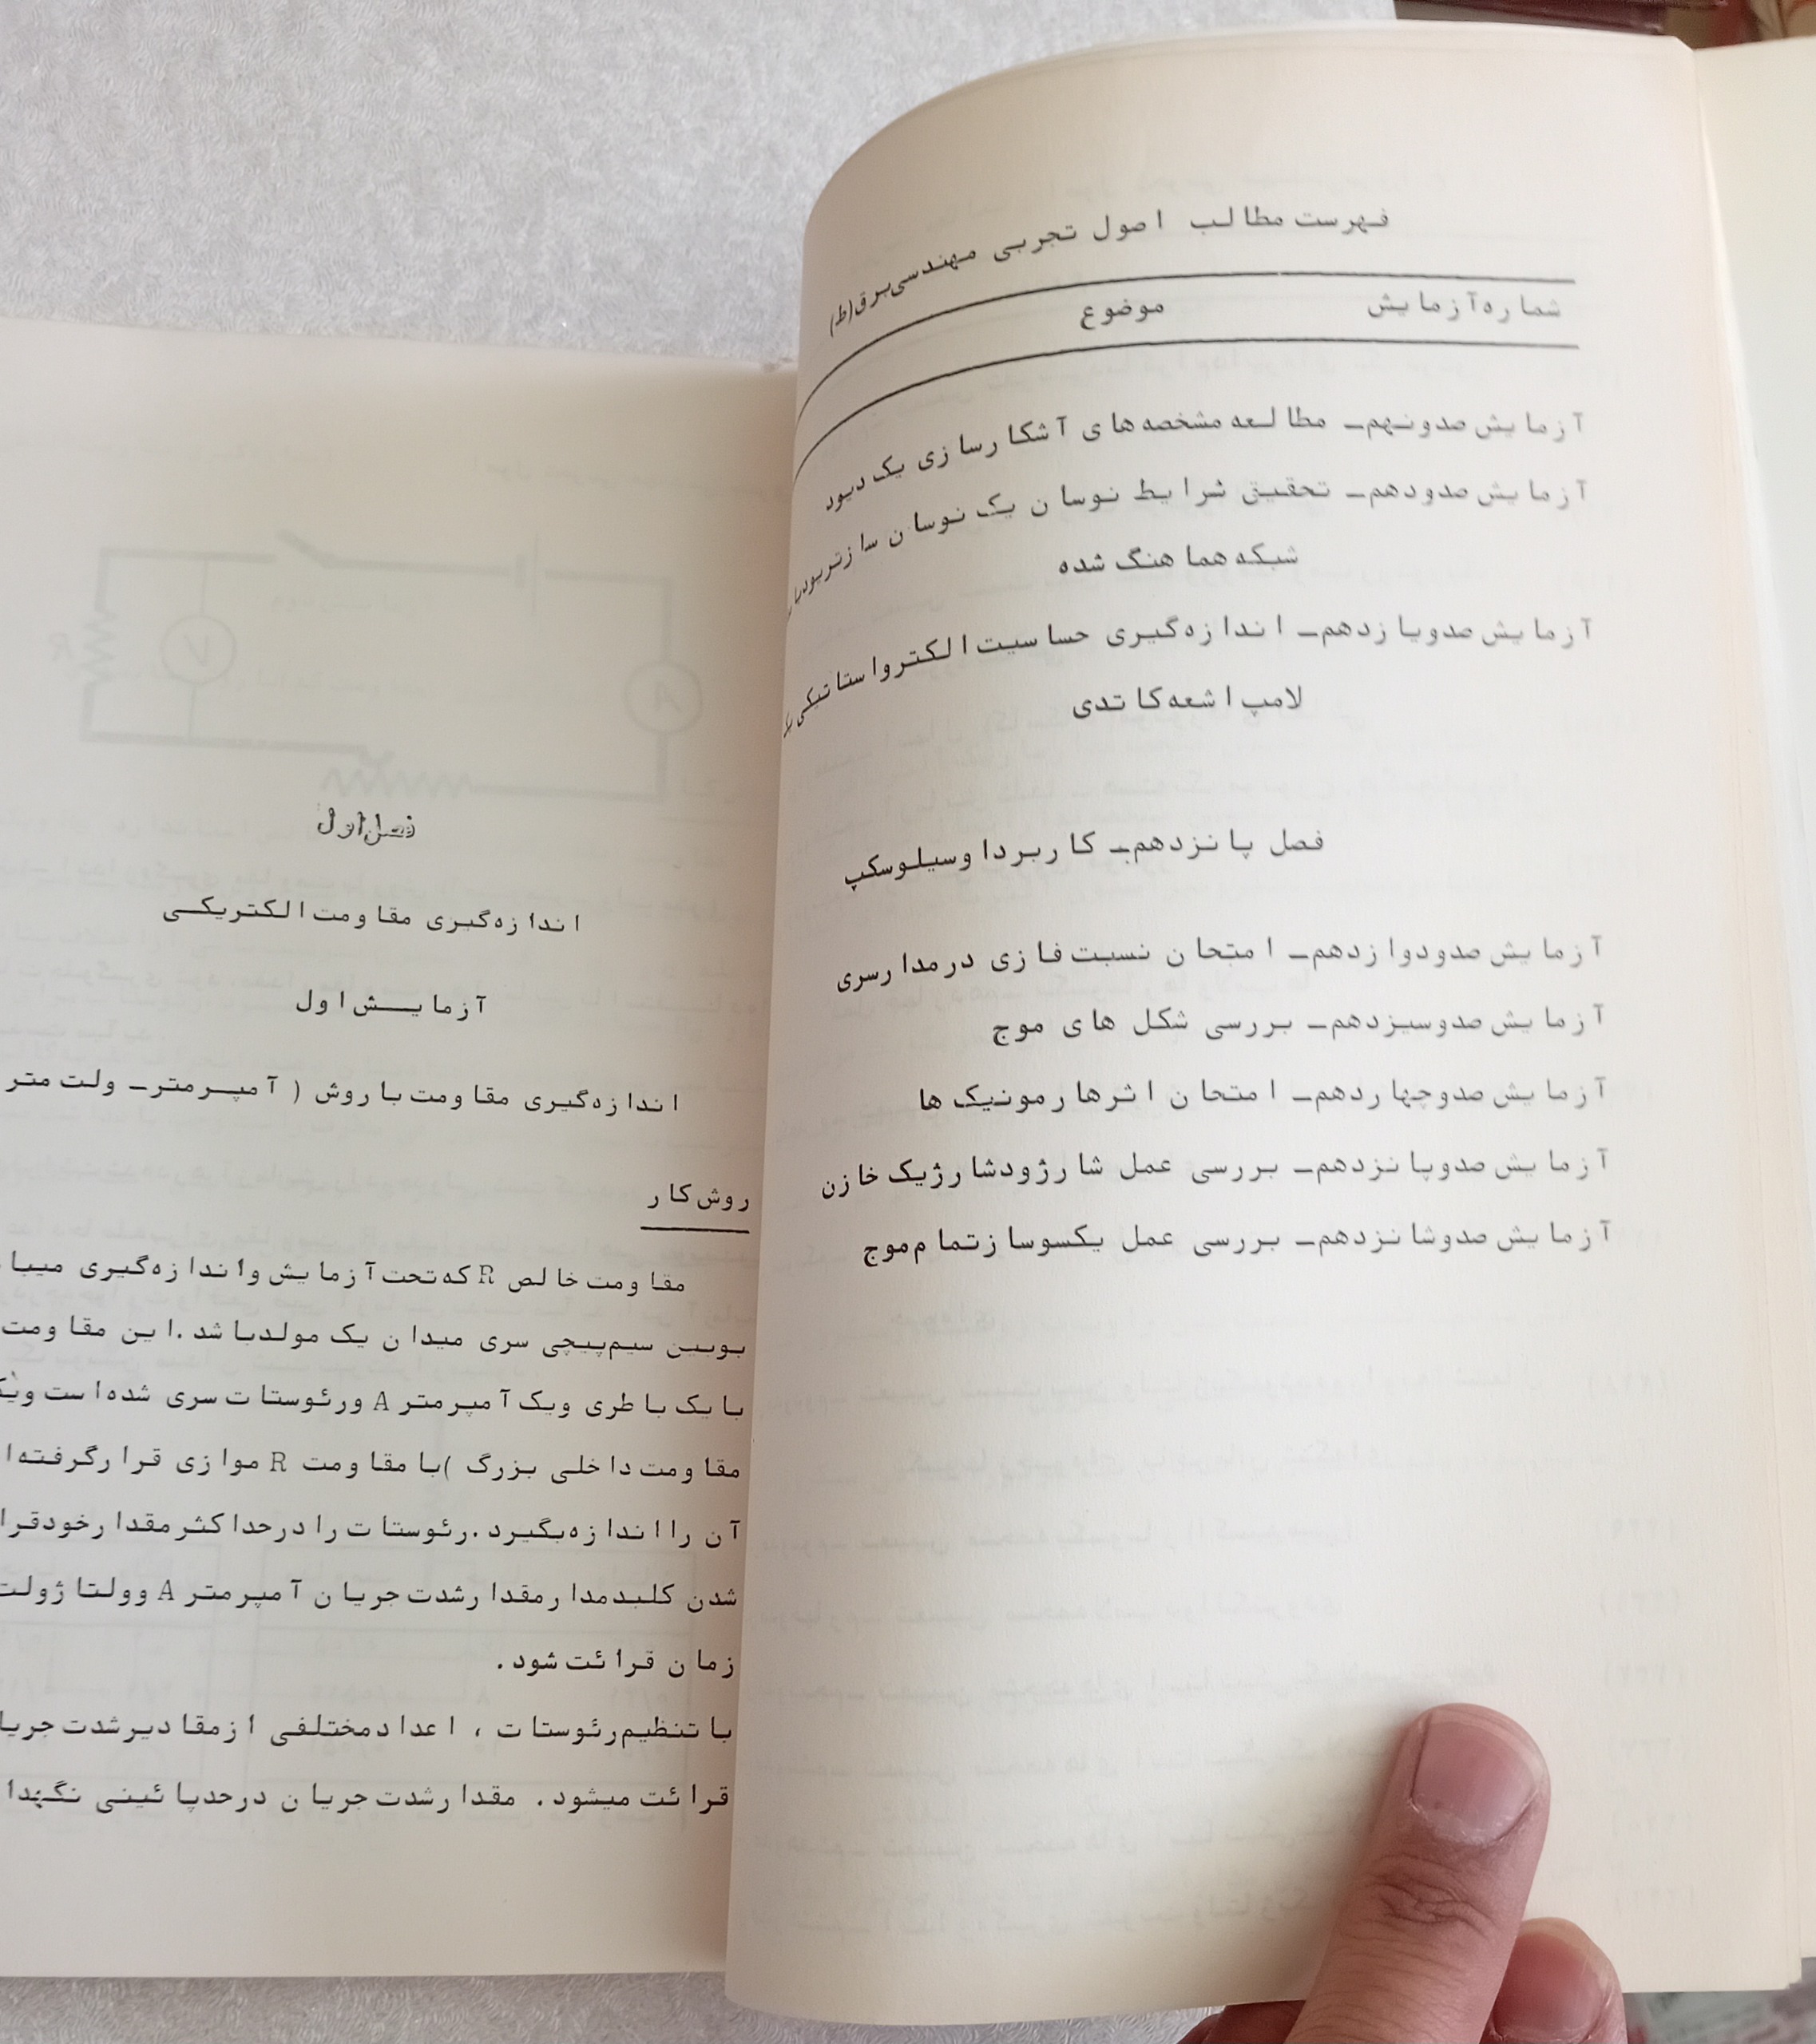 فهرست مطالب اصول تجربی مهندسی برق (ط)
شماره آزمایش موضوع
آزمایش صدونهم ـ مطالعه مشخصه های آشکارسازی یک دیود
آزمایش صدودهم ـ تحقیق شرایط نوسان یک نوسان ساز تریود با
شبکه هماهنگ شده
آزمایش صدویازدهم ـ اندازه‌گیری حساسیت الکترواستاتیکی یک
لامپ اشعه کاتدی
فصل پانزدهم ـ کاربرد اوسیلوسکپ
آزمایش صدودوازدهم ـ امتحان نسبت فازی در مدار سری
آزمایش صدوسیزدهم ـ بررسی شکل های موج
آزمایش صدوچهاردهم ـ امتحان اثر هارمونیک ها
آزمایش صدوپانزدهم ـ بررسی عمل شارژ ودشارژ یک خازن
آزمایش صدوشانزدهم ـ بررسی عمل یکسوساز تمام موج
فصل اول
اندازه‌گیری مقاومت الکتریکی
آزمایش اول
اندازه‌گیری مقاومت با روش ( آمپرمتر ـ ولت متر
روش کار
مقاومت خالص R که تحت آزمایش واندازه‌گیری میبا
بوبین سیم‌پیچی سری میدان یک مولد باشد . این مقاومت
با یک باطری ویک آمپرمتر A ورئوستات سری شده است ویک
مقاومت داخلی بزرگ ) با مقاومت R موازی قرار گرفته ا
آن را اندازه بگیرد . رئوستات را در حداکثر مقدار خود قرا
شدن کلید مدار مقدار شدت جریان آمپرمتر A وولتاژ ولت
زمان قرائت شود .
با تنظیم رئوستات ، اعداد مختلفی از مقادیر شدت جریا
قرائت میشود . مقدار شدت جریان در حد پائینی نگهدا